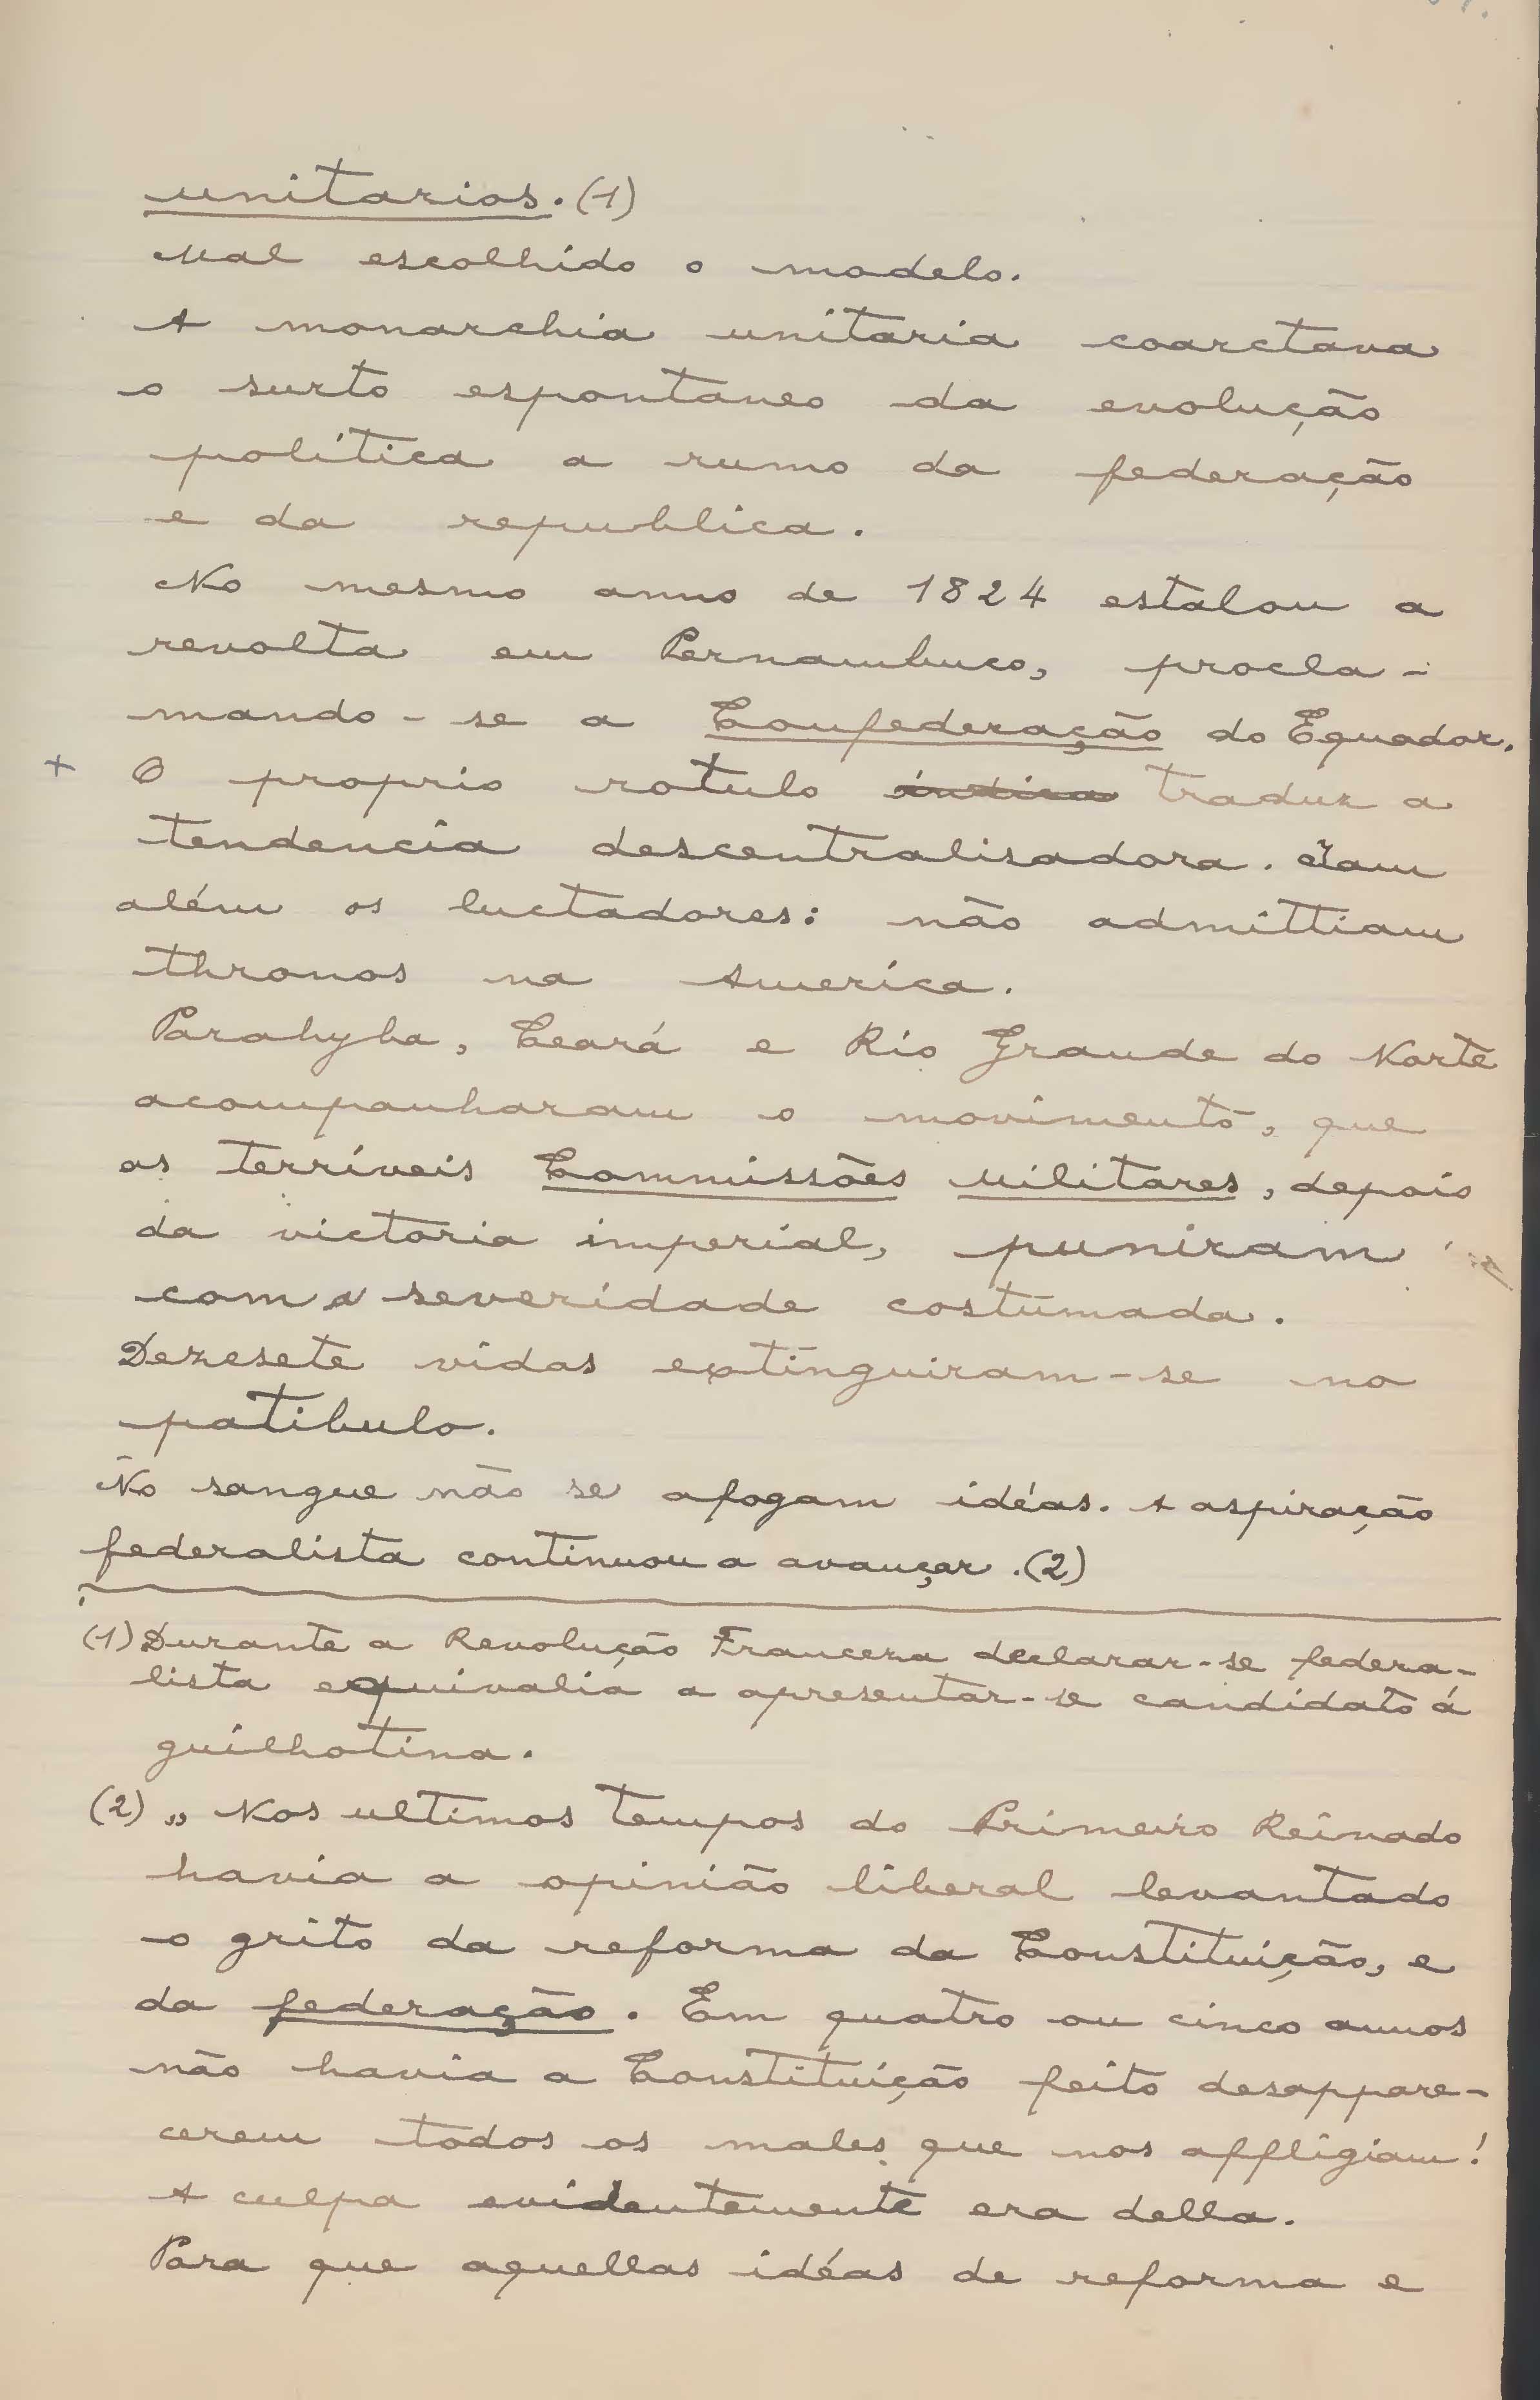 unitarios. (1)
Mal escolhido o modelo.
A monarchia unitaria coarctava
o surto espontaneo da evolução
política a rumo da federação
e da republica.
No mesmo anno de 1824 estalou a
revolta em Pernambuco, procla-
mando-se a Confederação do Equador.
+ O proprio rotulo indica traduz a
tendencia descentralisadora. Iam
além os luctadores: não admittiam
thronos na America.
Parahyba, Ceará e Rio Grande do Norte
acompanharam o movimento, que
as terríveis Commissões Militares, depois
da victoria imperial, puniram
com a severidade costumada.
Dezesete vidas extinguiram-se no
patibulo.
No sangue não se afogam idéas. A aspiração
federalista continuou a avançar. (2)
(1) Durante a Revolução Franceza declarar-se federa-
lista equivalia a apresentar-se candidato á
guilhotina.
(2) „ Nos ultimos tempos do Primeiro Reinado
havia a opinião liberal levantado
o grito da reforma da Constituição, e
da federação. Em quatro ou cinco annos
não havia a Constituição feito desappare-
cerem todos os males que nos affligiam!
A culpa evidentemente era della.
Para que aquellas idéas de reforma e